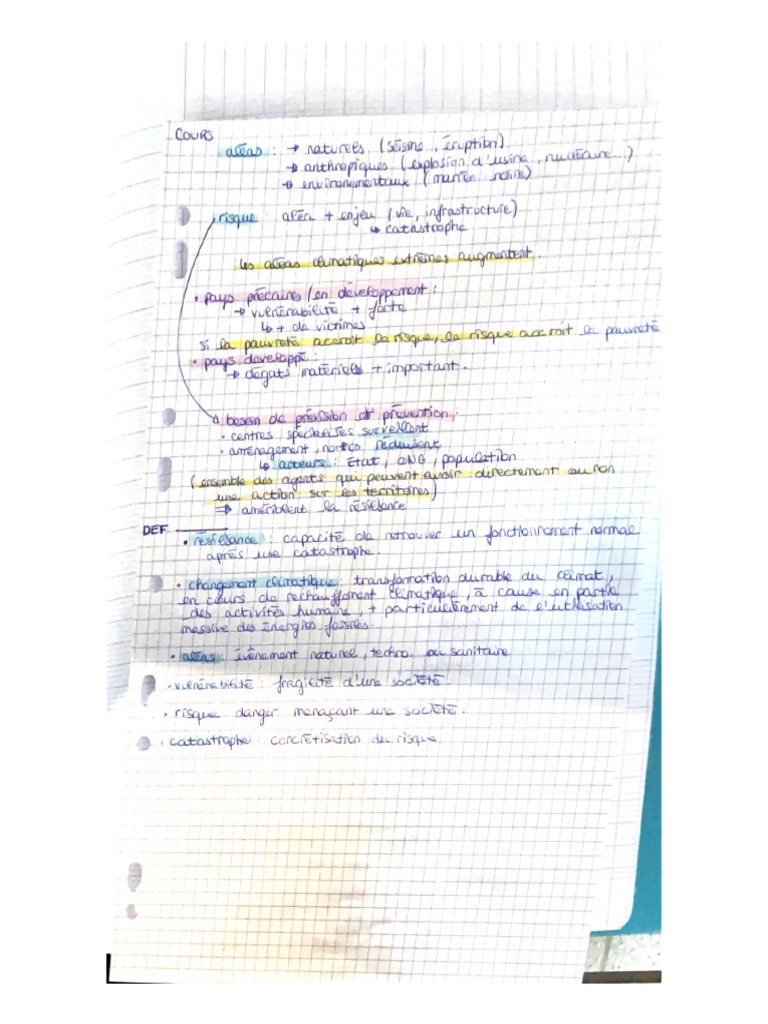 COURS
aléas : → naturels (séisme, éruption)
→ anthropiques (explosion d'usine, nucléaire...)
→ environementaux (marrée noire)
risque : aléa + enjeu (vie, infrastructure)
↳ catastrophe
les aléas climatiques extrêmes augmentent.
• pays précaires/en développement :
→ vulnérabilité + forte
↳ + de victimes
si la pauvreté accroit le risque, le risque accroit la pauvreté
• pays développé :
→ dégats matériels + important.
besoin de prévision et prévention :
• centres spécialisés surveillent
• aménagement, normes réduisent
↳ acteurs : État, ONG, population
(ensemble des agents qui peuvent avoir directement ou non
une action sur les territoires)
⇒ améliorent la résilience
DEF
• résilience : capacité de retrouver un fonctionnement normal
après une catastrophe.
• changement climatique : transformation durable du climat,
en cours de rechauffement climatique, à cause en partie
des activités humaine, + particulièrement de l'utilisation
massive des énergies fossiles.
• aléas : évènement naturel, techno. ou sanitaire
• vulnérabilité : fragilité d'une société.
• risque danger menaçant une société.
• catastrophe : concrétisation du risque.